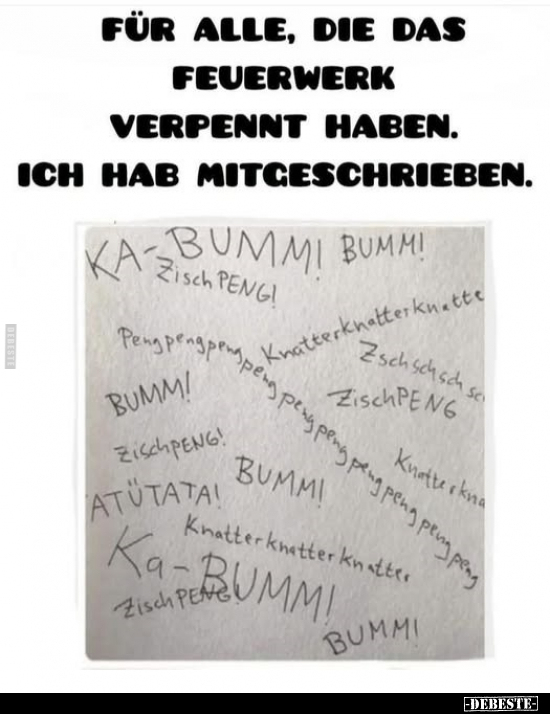 FÜR ALLE, DIE DAS
FEUERWERK
VERPENNT HABEN.
ICH HAB MITGESCHRIEBEN.
KA-BUMM! BUMM!
Zisch PENG!
Knatterknatterknatte
Pengpengpengpengpengpengpengpengpengpeng
Zschschschsc
BUMM!
ZischPENG
ZischPENG!
Knatterkna
BUMM!
ATÜTATA!
Knatterknatterknatter
Ka-BUMM!
Zisch PENG!
BUMM!
DEBESTE
-DEBESTE-